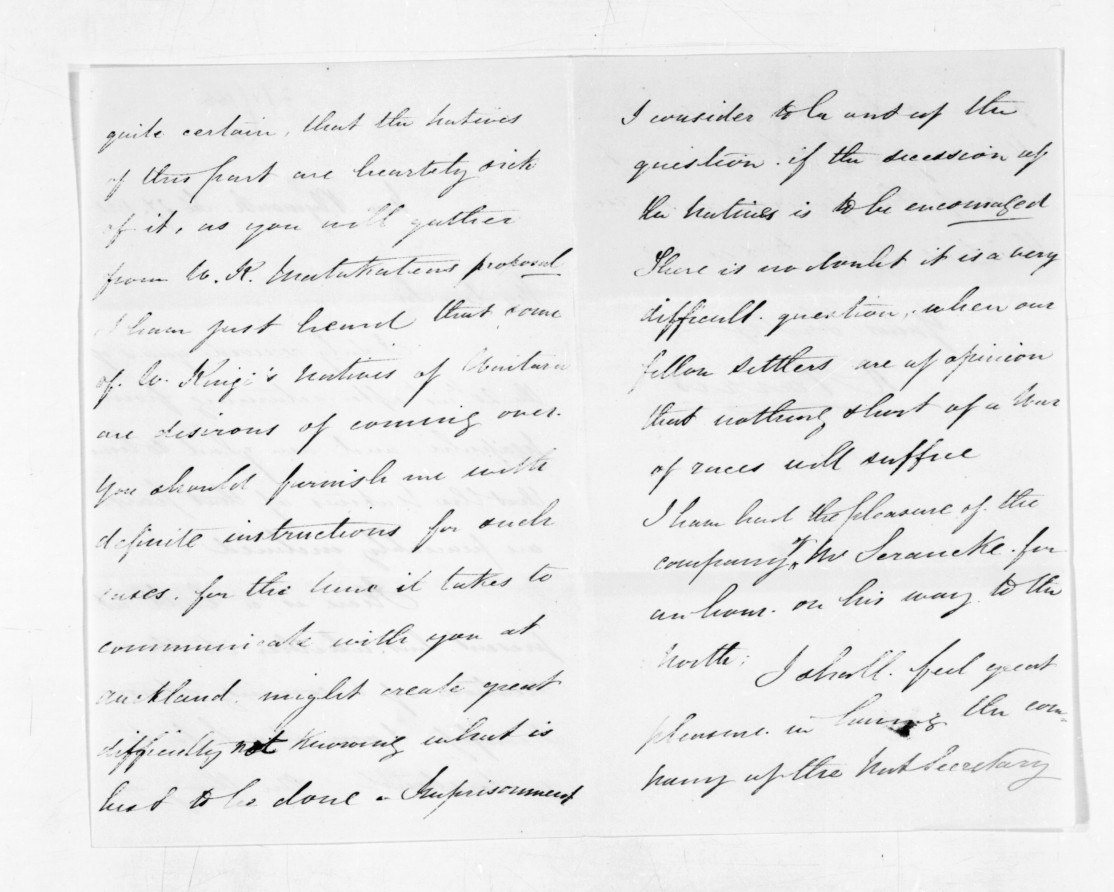 quite certain, that the natives
of this part are heartely sick
of it, as you will gather
from W. K. Matakatiens proposal
I have just heard that some
of W. Kingi's natives of
are desirous of coming over.
You should furnish me with
definite instructions for such
cases, for the time it takes to
communicate with you at
auckland. might create great
difficulty not knowing what is
best to be done - Imprisonment
I consider to be out of the
question. if the secession of
the natives is to be encouraged
There is no doubt it is a very
difficult. question, when our
fellow settlers are of opinion
that nothing short of a War
of races will suffice
I have had the pleasure of the
company of Mr Serancke. for
an hour. on his way to the
North;
I shall. feel great
pleasure. in having the com-
pany of the Nat Secretary